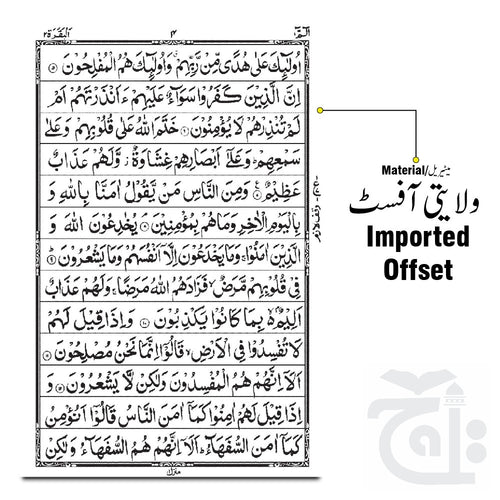 الٓمّٓ ١
٤
البقرة ٢
اُولٰٓئِكَ عَلٰى هُدًى مِّنْ رَّبِّهِمْ ۗ وَاُولٰٓئِكَ هُمُ الْمُفْلِحُوْنَ ۝٥
اِنَّ الَّذِيْنَ كَفَرُوْا سَوَآءٌ عَلَيْهِمْ ءَاَنْذَرْتَهُمْ اَمْ
لَمْ تُنْذِرْهُمْ لَا يُؤْمِنُوْنَ ۝٦ خَتَمَ اللّٰهُ عَلٰى قُلُوْبِهِمْ وَعَلٰى
سَمْعِهِمْ ۗ وَعَلٰٓى اَبْصَارِهِمْ غِشَاوَةٌ ۖ وَّلَهُمْ عَذَابٌ
عَظِيْمٌ ۝٧ وَمِنَ النَّاسِ مَنْ يَّقُوْلُ اٰمَنَّا بِاللّٰهِ وَ
بِالْيَوْمِ الْاٰخِرِ وَمَا هُمْ بِمُؤْمِنِيْنَ ۝٨ يُخٰدِعُوْنَ اللّٰهَ وَ
الَّذِيْنَ اٰمَنُوْا ۚ وَمَا يَخْدَعُوْنَ اِلَّآ اَنْفُسَهُمْ وَمَا يَشْعُرُوْنَ ۝٩
فِيْ قُلُوْبِهِمْ مَّرَضٌ ۙ فَزَادَهُمُ اللّٰهُ مَرَضًا ۚ وَلَهُمْ عَذَابٌ
اَلِيْمٌۢ ۙ بِمَا كَانُوْا يَكْذِبُوْنَ ۝١٠ وَاِذَا قِيْلَ لَهُمْ
لَا تُفْسِدُوْا فِي الْاَرْضِ ۙ قَالُوْٓا اِنَّمَا نَحْنُ مُصْلِحُوْنَ ۝١١
اَلَآ اِنَّهُمْ هُمُ الْمُفْسِدُوْنَ وَلٰكِنْ لَّا يَشْعُرُوْنَ ۝١٢ وَ
اِذَا قِيْلَ لَهُمْ اٰمِنُوْا كَمَآ اٰمَنَ النَّاسُ قَالُوْٓا اَنُؤْمِنُ
كَمَآ اٰمَنَ السُّفَهَآءُ ۗ اَلَآ اِنَّهُمْ هُمُ السُّفَهَآءُ وَلٰكِنْ
منزل
Material/میٹیریل
ولایتی آفسٹ
Imported
Offset